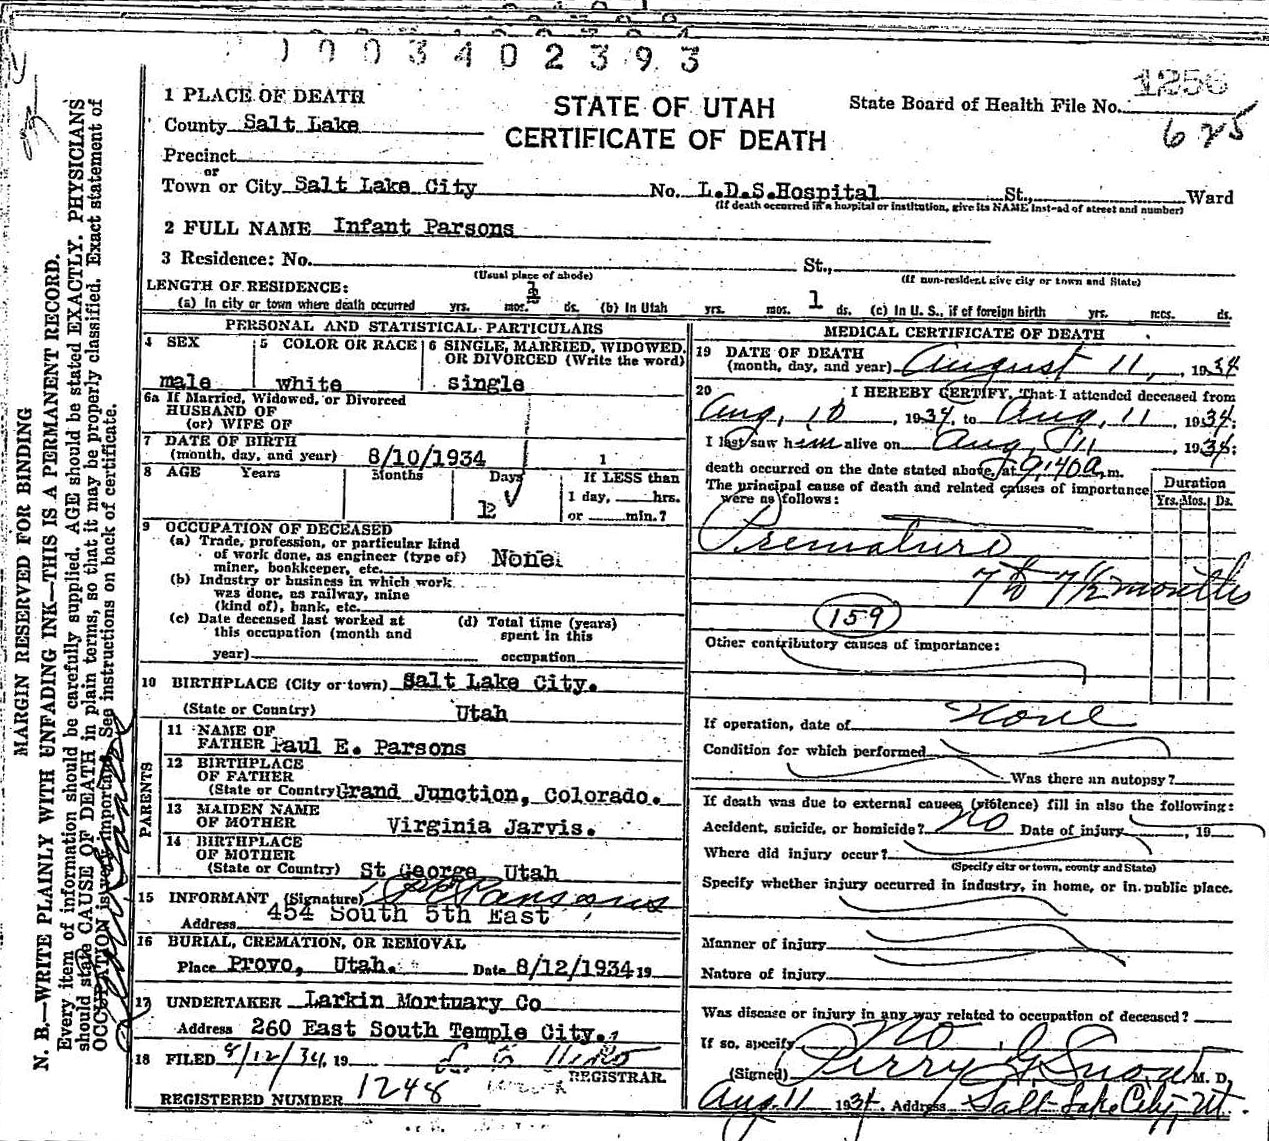 1003402393
1256
STATE OF UTAH
CERTIFICATE OF DEATH
State Board of Health File No.
625
1 PLACE OF DEATH
County Salt Lake
Precinct
or
Town or City Salt Lake City No. L.D.S.Hospital St., Ward
(If death occurred in a hospital or institution, give its NAME instead of street and number)
2 FULL NAME Infant Parsons
3 Residence: No. St.,
(Usual place of abode) (If non-resident give city or town and State)
LENGTH OF RESIDENCE:
(a) In city or town where death occurred yrs. mos. ds. (b) In Utah yrs. mos. 1 ds. (c) In U. S., if of foreign birth yrs. mos. ds.
PERSONAL AND STATISTICAL PARTICULARS
4 SEX 5 COLOR OR RACE 6 SINGLE, MARRIED, WIDOWED, OR DIVORCED (Write the word)
male white single
6a If Married, Widowed, or Divorced
HUSBAND OF
(or) WIFE OF
7 DATE OF BIRTH
(month, day, and year) 8/10/1934 1
8 AGE Years Months Days If LESS than
1 day, hrs.
or min.?
9 OCCUPATION OF DECEASED
(a) Trade, profession, or particular kind
of work done, as engineer (type of)
miner, bookkeeper, etc. None
(b) Industry or business in which work
was done, as railway, mine
(kind of), bank, etc.
(c) Date deceased last worked at
this occupation (month and
year)
(d) Total time (years)
spent in this
occupation
10 BIRTHPLACE (City or town) Salt Lake City.
(State or Country) Utah
PARENTS
11 NAME OF
FATHER Paul E. Parsons
12 BIRTHPLACE
OF FATHER
(State or Country) Grand Junction, Colorado.
13 MAIDEN NAME
OF MOTHER Virginia Jarvis.
14 BIRTHPLACE
OF MOTHER
(State or Country) St George, Utah
15 INFORMANT (Signature) Parsons
Address 454 South 5th East
16 BURIAL, CREMATION, OR REMOVAL
Place Provo, Utah. Date 8/12/1934 19
17 UNDERTAKER Larkin Mortuary Co
Address 260 East South Temple City.
18 FILED 8/12/34, 19
REGISTRAR
REGISTERED NUMBER 1248
MEDICAL CERTIFICATE OF DEATH
19 DATE OF DEATH
(month, day, and year) August 11, 1934
20 I HEREBY CERTIFY, That I attended deceased from
Aug, 10, 1934, to Aug, 11 1934;
I last saw him alive on Aug, 11, 1934;
death occurred on the date stated above, at 9:40 a.m.
The principal cause of death and related causes of importance
were as follows:
Duration
Yrs. Mos. Ds.
Premature
7 to 7 1/2 months
159
Other contributory causes of importance:
If operation, date of None
Condition for which performed
Was there an autopsy?
If death was due to external causes (violence) fill in also the following:
Accident, suicide, or homicide? No Date of injury , 19
Where did injury occur?
(Specify city or town, county and State)
Specify whether injury occurred in industry, in home, or in public place.
Manner of injury
Nature of injury
Was disease or injury in any way related to occupation of deceased?
If so, specify No
(Signed) Perry G. Snow M. D.
Aug. 11 1934 Address Salt Lake City, Ut.
MARGIN RESERVED FOR BINDING
N. B.—WRITE PLAINLY WITH UNFADING INK—THIS IS A PERMANENT RECORD.
Every item of information should be carefully supplied. AGE should be stated EXACTLY. PHYSICIANS
should state CAUSE OF DEATH in plain terms, so that it may be properly classified. Exact statement of
OCCUPATION is very important. See instructions on back of certificate.